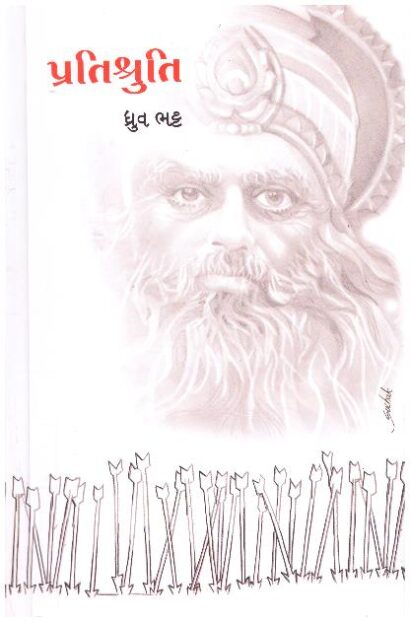 પ્રતિશ્રુતિ
ધ્રુવ ભટ્ટ